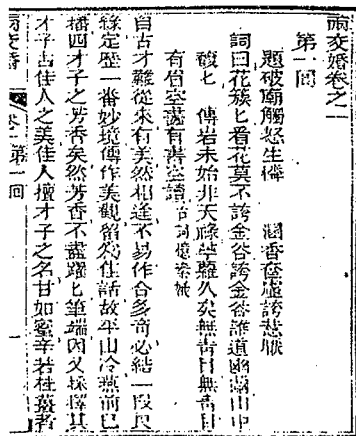 兩交婚卷之一
第一回
題破廟觸怒生憐 溷香奩虛誇慧
詞曰花簇匕看花莫不誇金谷誇金谷誰道幽蘭山中
馥匕 傅岩未始非天祿苧蘿久矣無青目無青目
有眉空畫有書空讀 右調憶秦娥
自古才難從來有美然相逢不易作合多奇必結一段良
緣定歷一番妙境傳作美觀留爲佳話故平山冷燕前已
播四才子之芳香矣然芳香不盡躍匕筆端因又採擇其
才子占佳人之美佳人擅才子之名甘如蜜辛若桂薑者
兩交婚 卷一 第一回 一